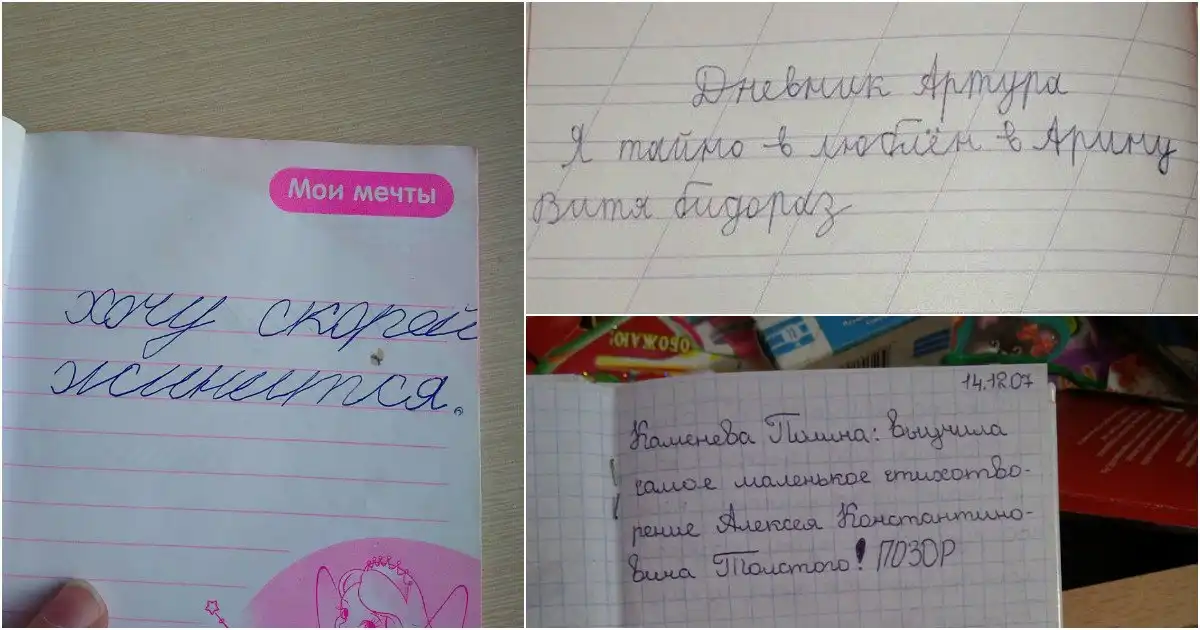 Мои мечты
хочу скорей
жинится.
Дневник Артура
Я тайно в люблён в Арину
Витя бидораз
ОБОЖАЮ!
14.12.07
Каменева Полина: выучила
самое маленькое стихотво-
рение Алексея Константино-
вича Толстого! ПОЗОР